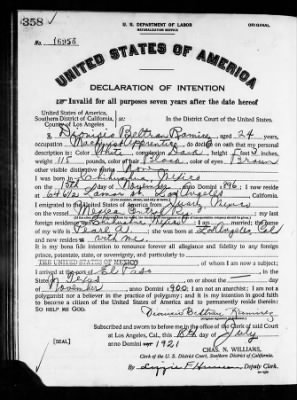 358
U. S. DEPARTMENT OF LABOR
NATURALIZATION SERVICE
ORIGINAL
No. 16955
UNITED STATES OF AMERICA
DECLARATION OF INTENTION
Invalid for all purposes seven years after the date hereof
United States of America,
Southern District of California,
County of Los Angeles
In the District Court of the United States.
I, Dionisio Beltran Ramirez, aged 24 years,
occupation Machinist Apprentice, do declare on oath that my personal
description is: Color White, complexion Dark, height 5 feet inches,
weight 115 pounds, color of hair Black, color of eyes Brown
other visible distinctive marks None
I was born in Chihuahua, Mexico
on the day of November, anno Domini 1 896; I now reside
at Lamar St Los Angeles
I emigrated to the United States of America from Juarez Mexico
on the vessel Mexican Central Ry; my last
foreign residence was Mexico; I am married; the name
of my wife is Pearl A.; she was born at Los Angeles, Cal
and now resides at with me.
It is my bona fide intention to renounce forever all allegiance and fidelity to any foreign
prince, potentate, state, or sovereignty, and particularly to
THE UNITED STATES OF MEXICO, of whom I am now a subject;
I arrived at the port of El Paso, in the
State of Texas, on or about the day
of November, anno Domini 1 900; I am not an anarchist; I am not a
polygamist nor a believer in the practice of polygamy; and it is my intention in good faith
to become a citizen of the United States of America and to permanently reside therein:
SO HELP ME GOD.
Dionicio Beltran Ramirez
Subscribed and sworn to before me in the office of the Clerk of said Court
at Los Angeles, Cal., this 18th day of July
anno Domini 1921
[SEAL]
CHAS. N. WILLIAMS,
Clerk of the U. S. District Court, Southern District of California.
By Deputy Clerk.